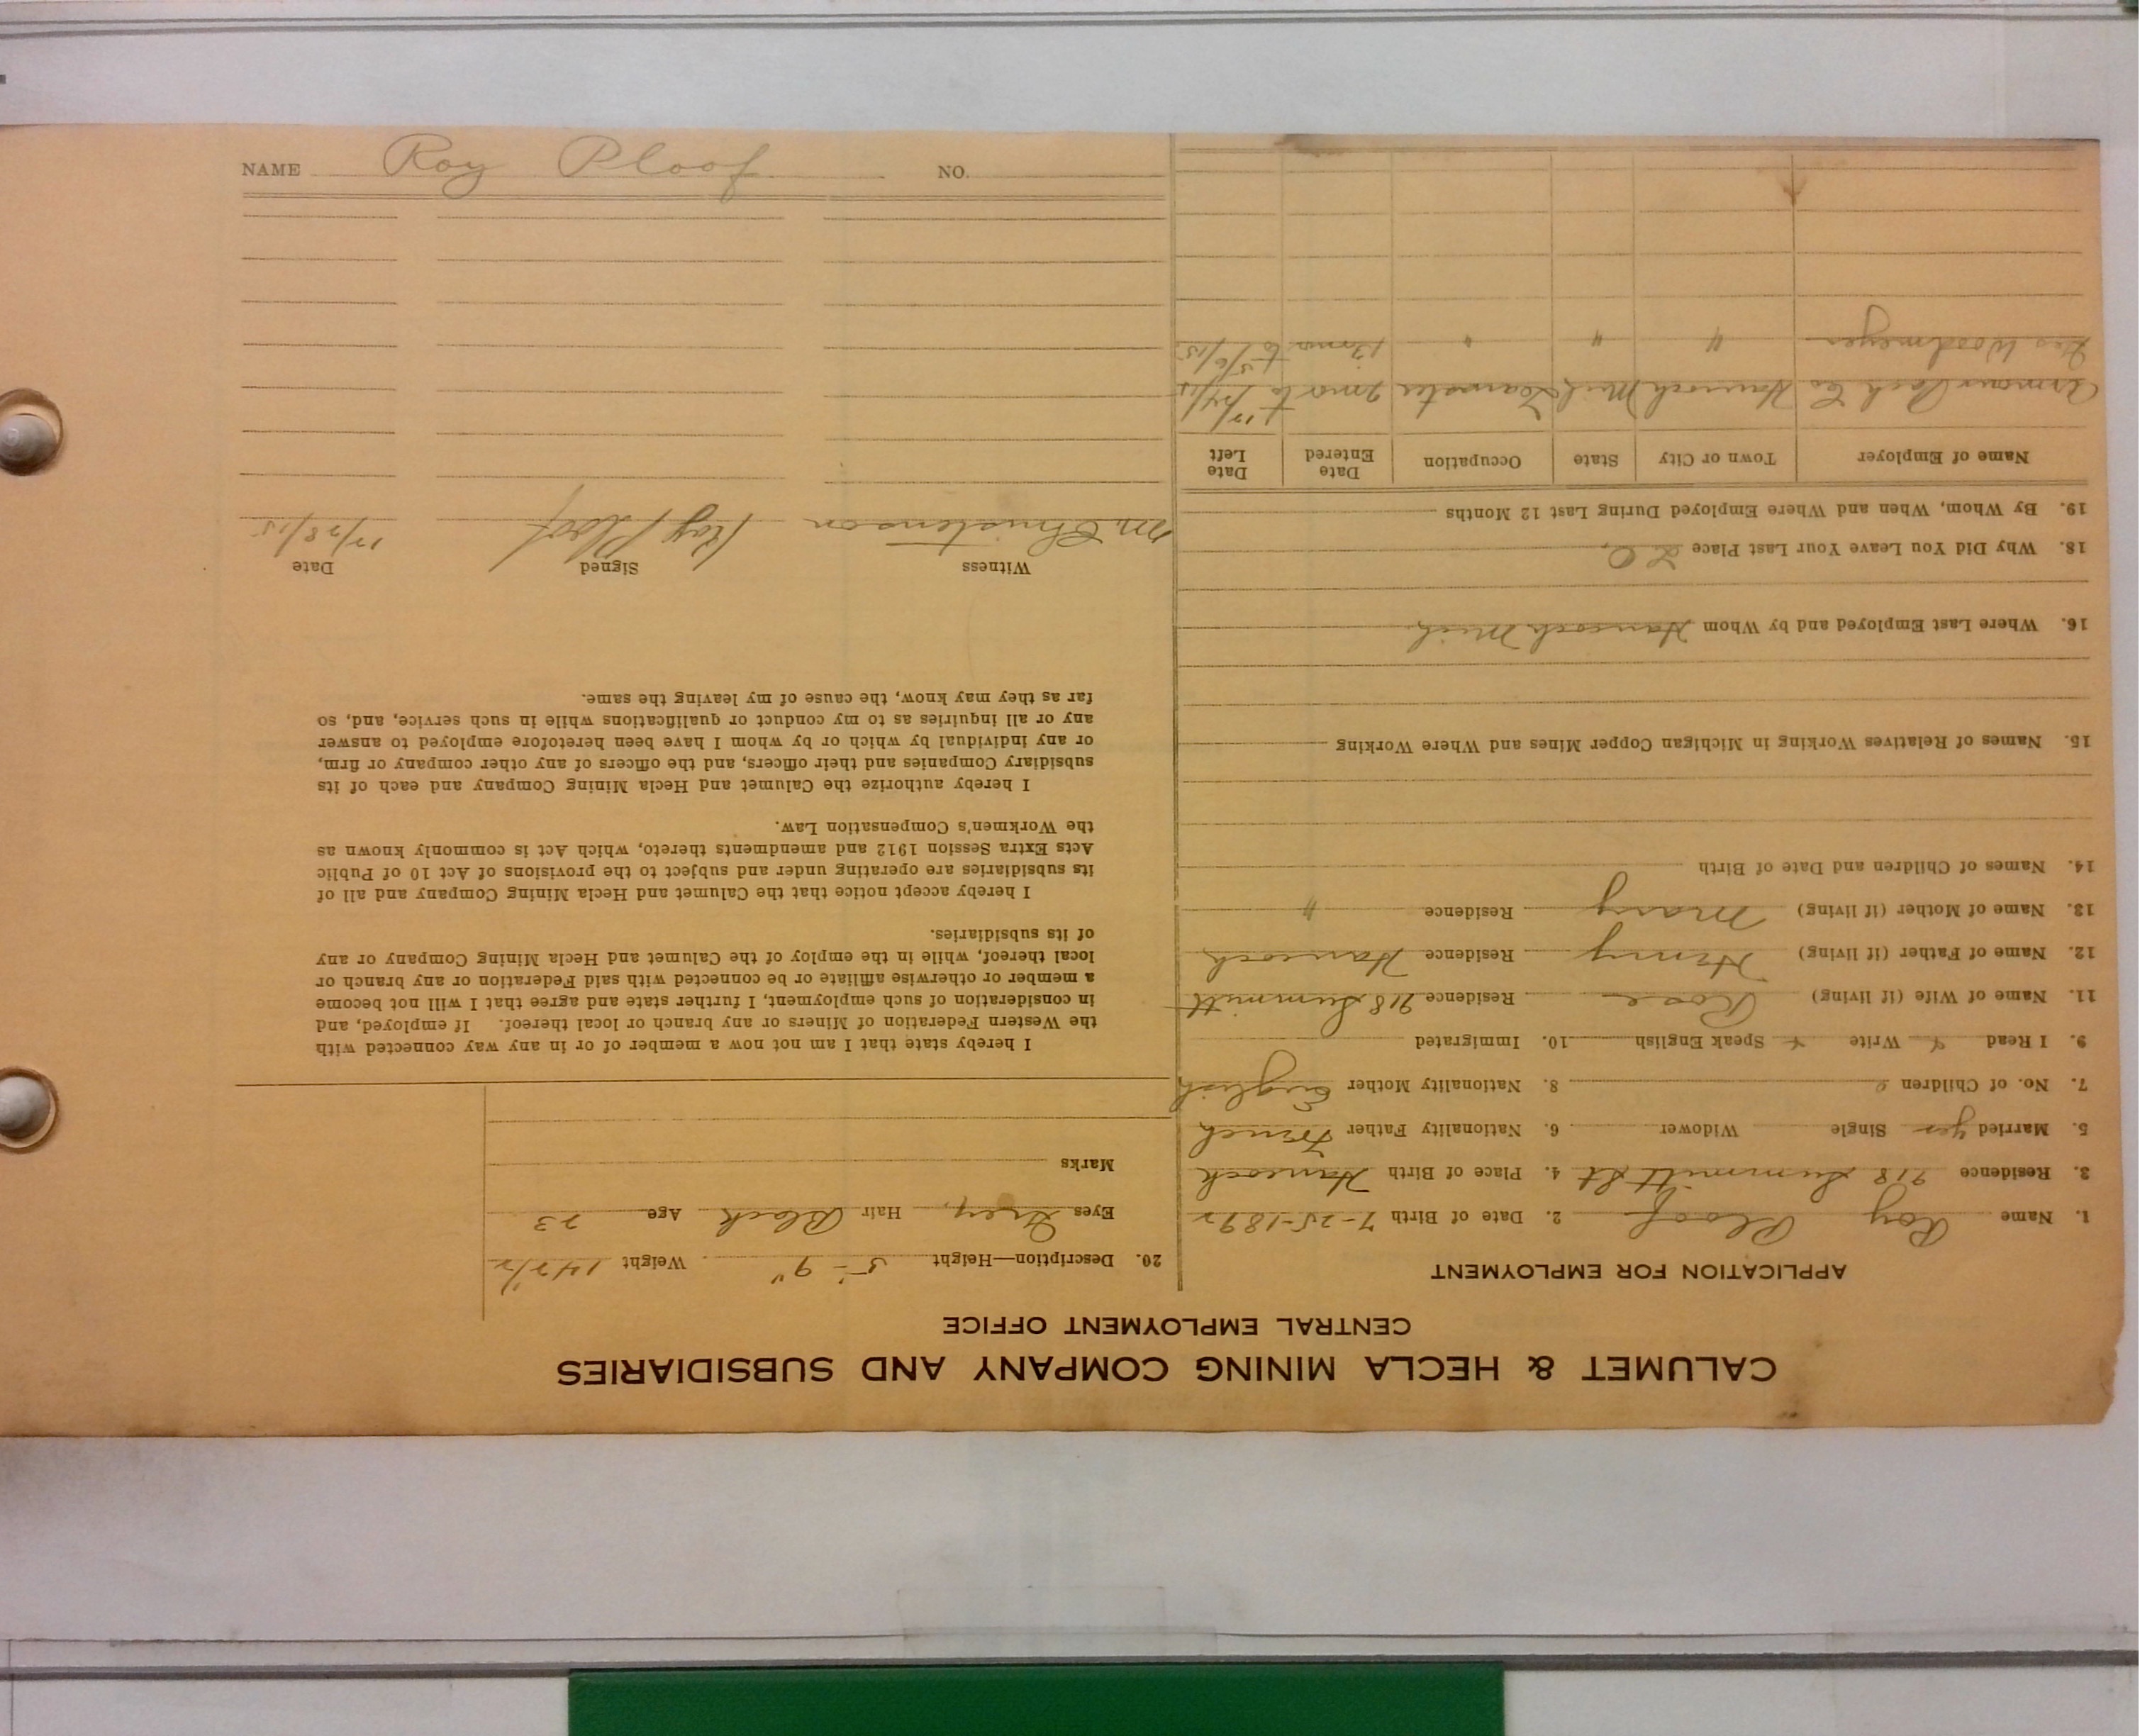 CALUMET & HECLA MINING COMPANY AND SUBSIDIARIES
CENTRAL EMPLOYMENT OFFICE
APPLICATION FOR EMPLOYMENT
1. Name Roy Ploof 2. Date of Birth 7-25-1892
3. Residence 918 Summitt St 4. Place of Birth Hancock
5. Married yes Single Widower 6. Nationality Father French
7. No. of Children 8. Nationality Mother English
9. I Read Write Speak English 10. Immigrated
11. Name of Wife (if living) Rose Residence 918 Summitt
12. Name of Father (if living) Henry Residence Hancock
13. Name of Mother (if living) Mary Residence "
14. Names of Children and Date of Birth
15. Names of Relatives Working in Michigan Copper Mines and Where Working
16. Where Last Employed and by Whom Hancock Mich
18. Why Did You Leave Your Last Place
19. By Whom, When and Where Employed During Last 12 Months
Name of Employer Town or City State Occupation Date Entered Date Left
Armour Pack Co Hancock Mich Teamster 2 mo to 12/24/15
Woodmeyer " " " mo to
20. Description—Height 5'-9" Weight 142 1/2
Eyes Grey Hair Black Age 23
Marks
I hereby state that I am not now a member of or in any way connected with
the Western Federation of Miners or any branch or local thereof. If employed, and
in consideration of such employment, I further state and agree that I will not become
a member or otherwise affiliate or be connected with said Federation or any branch or
local thereof, while in the employ of the Calumet and Hecla Mining Company or any
of its subsidiaries.
I hereby accept notice that the Calumet and Hecla Mining Company and all of
its subsidiaries are operating under and subject to the provisions of Act 10 of Public
Acts Extra Session 1912 and amendments thereto, which Act is commonly known as
the Workmen's Compensation Law.
I hereby authorize the Calumet and Hecla Mining Company and each of its
subsidiary Companies and their officers, and the officers of any other company or firm,
or any individual by which or by whom I have been heretofore employed to answer
any or all inquiries as to my conduct or qualifications while in such service, and, so
far as they may know, the cause of my leaving the same.
Witness Signed Date
M. Christenson Roy Ploof 12/28/15
NAME Roy Ploof NO.